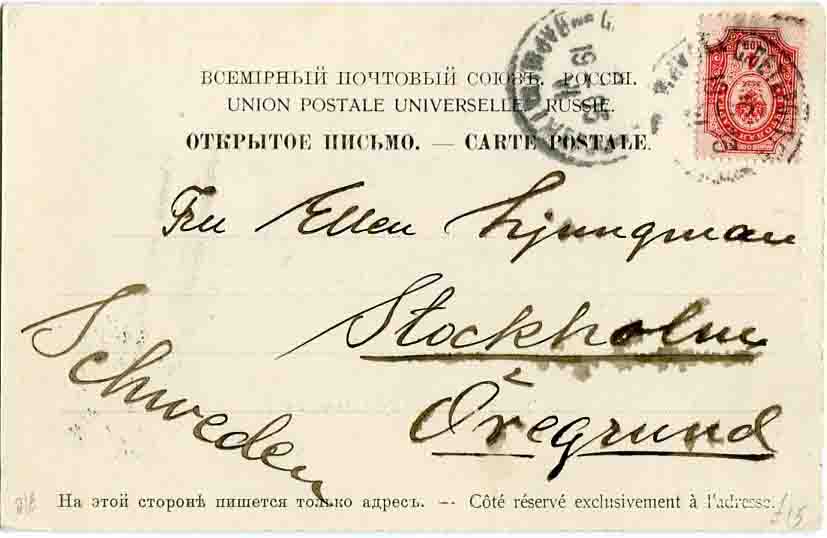 ВСЕМІРНЫЙ ПОЧТОВЫЙ СОЮЗЪ. РОССІЯ.
UNION POSTALE UNIVERSELLE. RUSSIE.
ОТКРЫТОЕ ПИСЬМО. — CARTE POSTALE.
Fru Ellen Ljungman
Stockholm
Öregrund
Schweden
На этой сторонѣ пишется только адресъ. — Côté réservé exclusivement à l'adresse.